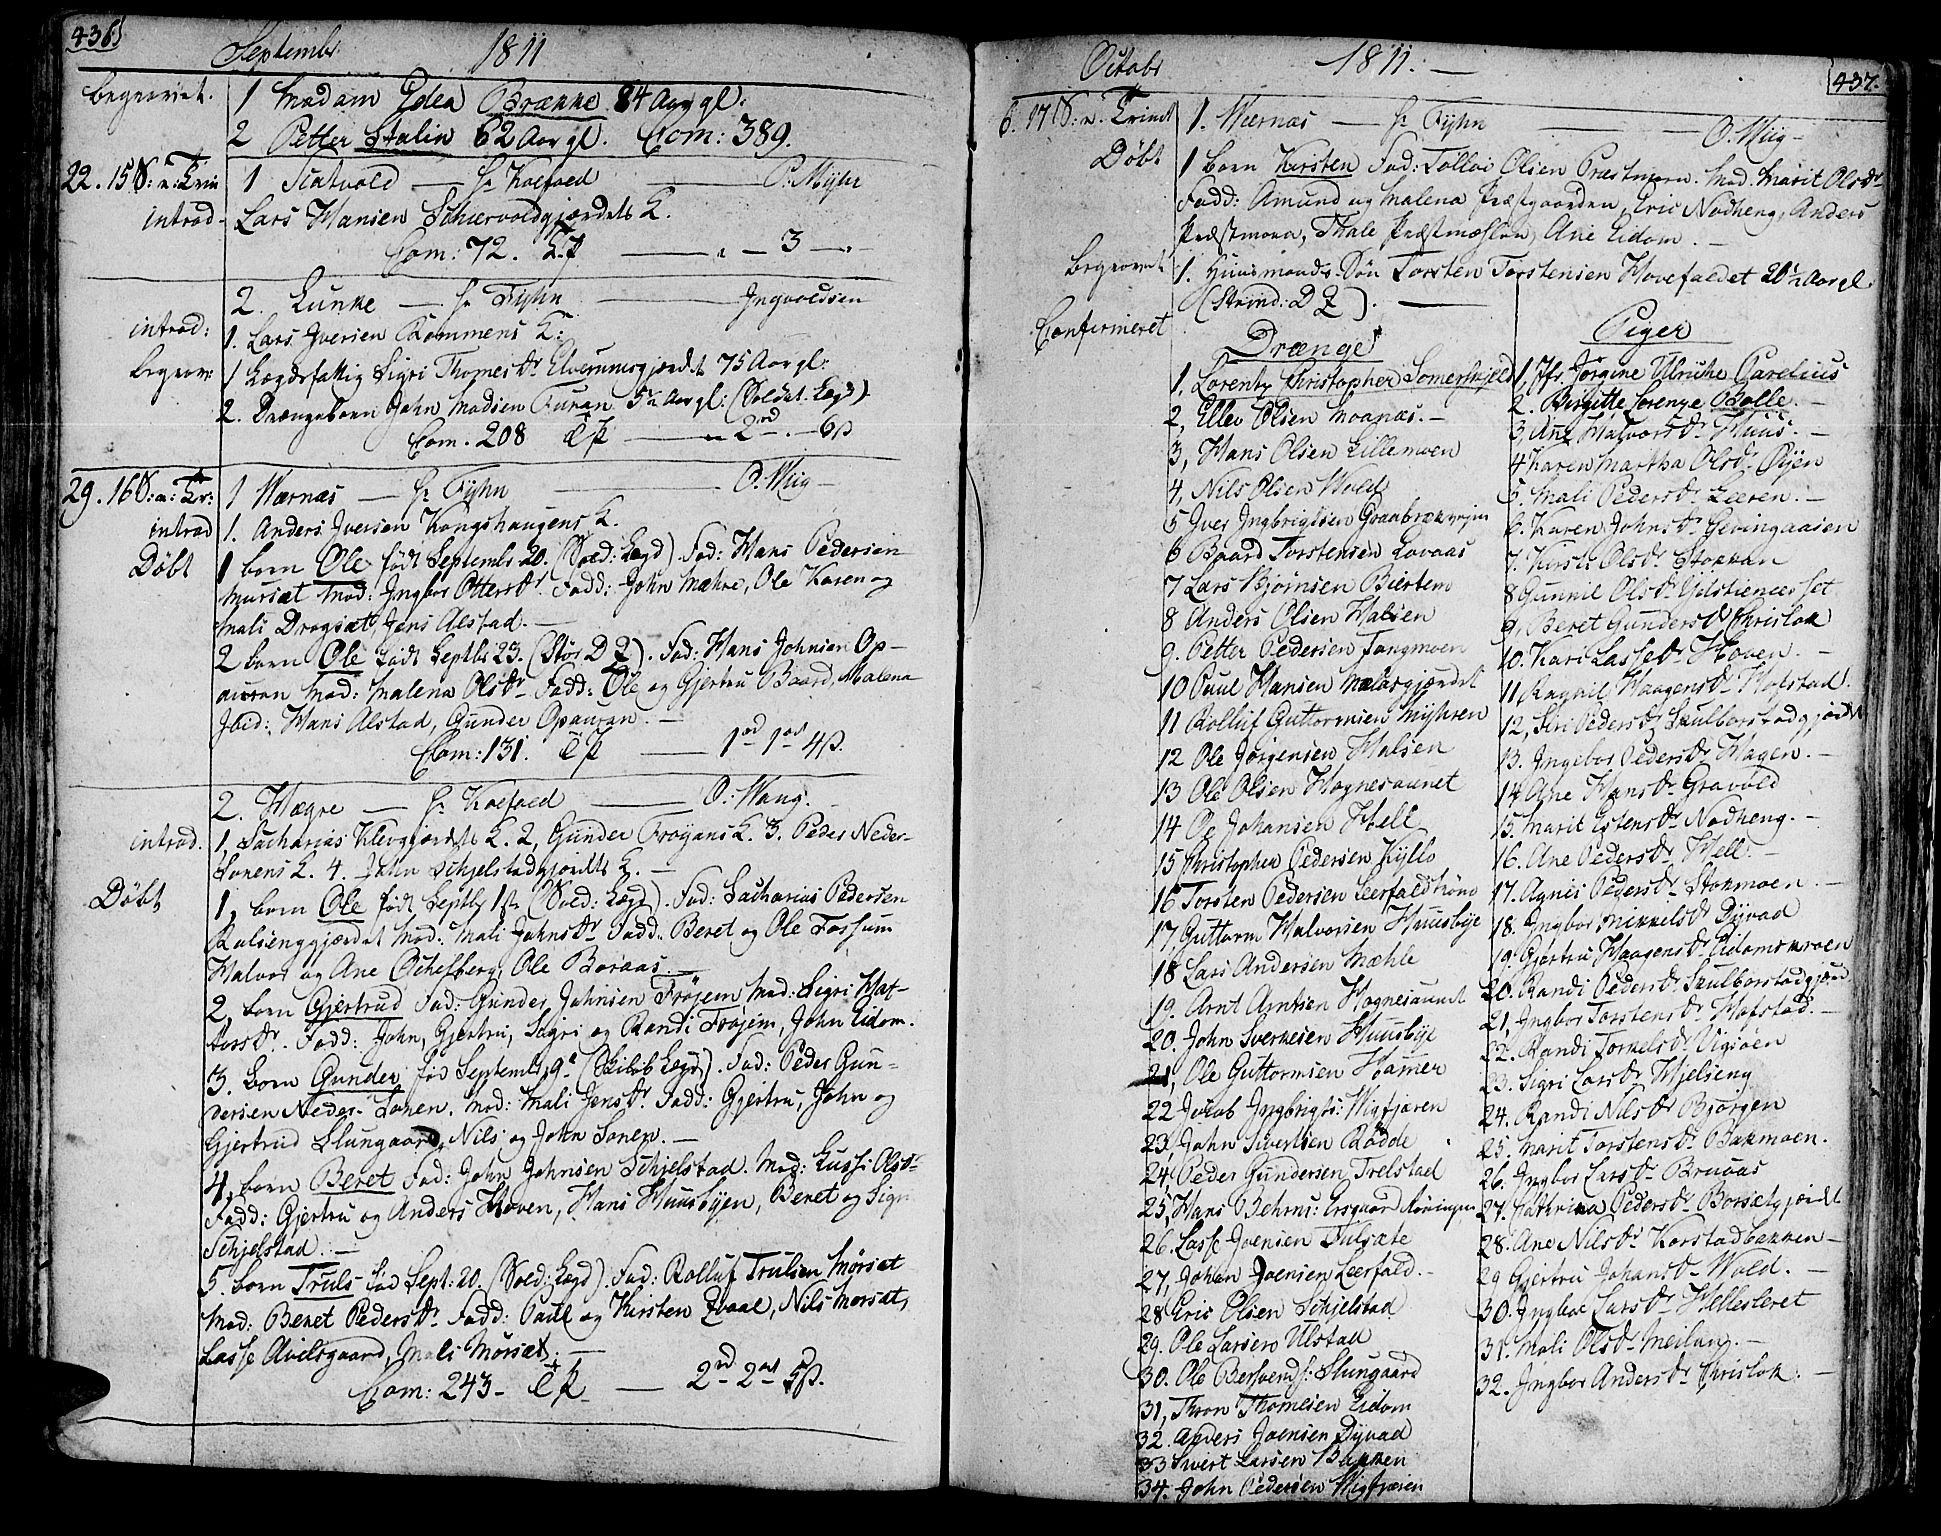 436
Septembr 1811
begravet. 1 Madam Idea Brække 84 Aar gl.
2 Petter Stalin 62 Aar gl. Com: 389.
22. 15 S: n: Trin 1 Schatvold — Hr Koefoed — P: Myhr
introd. Lars Hansen Schiervoldgjærdets K.
Com: 72. — 3 —
2. Lunke — Hr Fyhn — Ingvoldsen
introd: 1. Lars Iversen Rommens K:
begrav: 1 Lægdsfattig Sigri Thomesdr Elverumsgjærdet 75 Aar gl:
2. Drængebarn John Madsen Furan 5½ Aar gl: (Soldat. Lægd)
Com. 208 — 2rd — 6ß
29. 16 S: n: Tr: 1 Wærnæs — Hr Fyhn — O: Wiig —
introd 1. Anders Iversen Kongshaugens K.
Døbt 1 barn Ole født Septembr 20. (Soed: Lægd) Fad: Hans Pedersen
Mursæt Mod: Ingbor Ottersdr. Fadd: John Mæhre, Ole Karen og
Mali Dragsæt, Jens Alstad. —
2 barn Ole født Septbr 23. (Stør: D 2). Fad: Hans Johnsen Op-
auran Mod: Malena Olsdr Fadd: Ole og Gjertru Baard, Malena
Ibid: Hans Alstad, Gunder Opauran. —
Com: 131. — 1rd 1ort 4ß.
2. Hægre — Hr Koefoed — O: Wang.
introd. 1, Zacharias Klevgjærdets K. 2, Gunder Frøyans K. 3. Peder Neder-
Lonens K. 4. John Schjelstadgjerdets K. —
Døbt 1, barn Ole født Septbr 1ste (Soed: Lægd). Fad: Zacharias Pedersen
Mod: Mali Johnsdr Fadd: Beret og Ole Fossum
Halvor og Ane Ole Boraas —
2, barn Gjertrud Fad: Gunder Johnsen Frøjem Mod: Sigri Haf-
torsdr. Fadd: John, Gjertru, Sigri og Randi Frøjem, John Eidom.
3. barn Gunder fød Septembr 9de Fad: Peder Gun-
dersen Neder-Lonen. Mod: Mali Jensdr. Fadd: Gjertru, John og
Gjertrud Slungaard, Nils og John Lonen. —
4, barn Beret Fad: John Johnsen Schjelstad. Mod: Lussi Olsdr
Fadd: Gjertru og Anders Hoven, Hans Huusbyen, Beret og Sigri
Schjelstad. —
5. barn Truls fød Sept: 20. (Soed: Lægd). Fad: Rolluf Trulsen Mørsæt
Mod: Beret Pedersdr Fadd: Paul og Kirsten Zvaal, Nils Morsæt,
Lasse Avelsgaard, Mali Mørsæt. —
Com: 243 — 2rd 2ort 5ß.
Octobr 1811. — 437.
6. 17 S: n. Trinit 1. Wærnæs — Hr Fyhn — O. Wiig —
Døbt 1 barn Karsten Fad: Tollev Olsen Præstmoen. Mod. Marit Olsdr
Fadd: Amund og Malena Præstgaarden, Eric Nodheng, Anders
Præstmoen, Thale Præstmæhlen, Ane Eidom. —
begravet 1. Huusmands-Søn Torsten Torstensen Hovefaldet 20½ Aar gl.
(Strind: D 2). —
Confirmeret Drænge
1, Lorentz Christopher Somerschjeld
2, Ellev Olsen Moanæs. —
3, Hans Olsen Lillemoen
4, Nils Olsen Wold
5 Iver Ingbrigtsen
6 Baard Torstensen Lovaas
7 Lars Bjørnsen Biertem
8 Anders Olsen Halsen
9. Petter Pedersen Tangmoen
10 Paul Hansen Mælasgjærdet
11 Rolluf Guttormsen Myhren
12 Ole Jørgensen Halsen
13 Ole Olsen Hognesaunet
14 Ole Johansen Hell
15 Christopher Pedersen Kyllo
16 Torsten Pedersen Leerfald
17, Guttorm Halvorsen Huusbye
18 Lars Andersen Mæhle
19. Arnt Arntsen Hognesaunet
20. John Sverkesen Huusbye
21, Ole Guttormsen Hamer
22 Jacob Ingbrigts: Wigtjæren
23, John Sivertsen Rodde
24. Peder Gundersen Trelstad
25, Hans Behrns:
26. Lasse Joensen Fulsæte
27, Johan Joensen Leerfald. —
28 Eric Olsen Schjelstad
29. Ole Larsen Ulstad
30. Ole Bersvends: Slungaard
31, Thron Thomesen Eidom
32. Anders Joensen Dyvad
33 Sivert Larsen Bakken
34. John Pedersen Wigtjæren
Piger
1, Jfr. Jørgine Ulriche Parelius
2. Birgitte Lorenze Bolle. —
3, Ane Halvorsdr Huus. —
4 Karen Martha Olsdr Øyen
5. Mali Pedersdr Leeren. —
6. Karen Johnsdr Gevingaasen
7. Kirsti Olsdr Stokkan
8 Gunnil Olsdr
9, Beret Gundersdr
10. Kari Lassedr Hoven. —
11 Ragnil Haagensdr Hofstad.
12, Siri Pedersdr Skulborstadgjærdet
13. Ingebor Pedersdr Hagen. —
14 Ane Hansdr Gravold
15. Marit Estensdr Nodheng. —
16. Ane Pedersdr Hell. —
17. Agnis Pedersdr Stokmoen. —
18. Ingbor Mikkelsdr Dyvad
19. Gjertru Haagensdr
20. Randi Pedersdr Skulborstadgjærd
21, Ingbor Torstensdr Hofstad. —
22. Randi Torkelsdr Vigsøen
23. Sigri Larsdr Hjelseng
24. Randi Nilsdr Bjørgen
25. Marit Torstensdr Bakmoen.
26. Ingbor Larsdr Bruaas
27. Cathrina Pedersdr Borsætgjærdet
28. Ane Nilsdr Korstadbakken —
29 Gjertru Johansdr Wold. —
30. Ingbor Larsdr Hellesleret
31. Mali Olsdr Meilan. —
32. Ingbor Andersdr